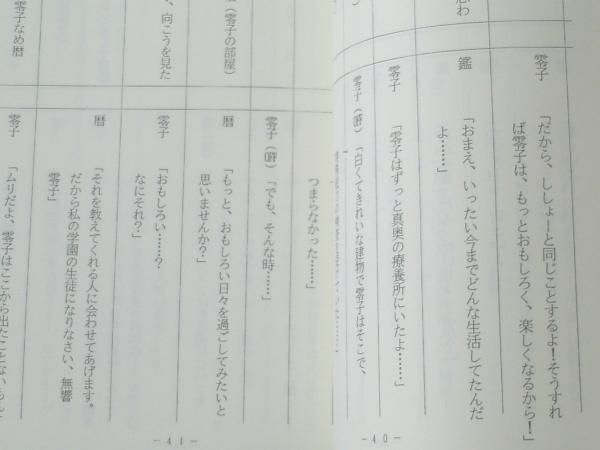 零子
「だから、ししょーと同じことするよ！そうすれ
ば零子は、もっとおもしろく、楽しくなるから！」
鑑
「おまえ、いったい今までどんな生活してたんだ
よ……」
零子
「零子はずっと真奥の療養所にいたよ……」
零子（囁）
「白くてきれいな建物で零子はそこで、
－40－
つまらなかった……」
零子（囁）
「でも、そんな時……」
（零子の部屋）
暦
「もっと、おもしろい日々を過ごしてみたいと
思いませんか？」
、向こうを見た
零子
「おもしろい……？
なにそれ？」
暦
「それを教えてくれる人に会わせてあげます。
だから私の学園の生徒になりなさい、無響
零子」
零子なめ暦
零子
「ムリだよ、零子はここから出たことないもん
－41－